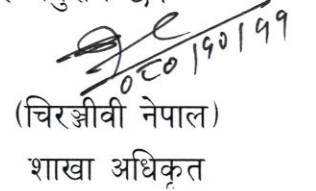 ०८०/१०/११
(चिरञ्जीवी नेपाल)
शाखा अधिकृत